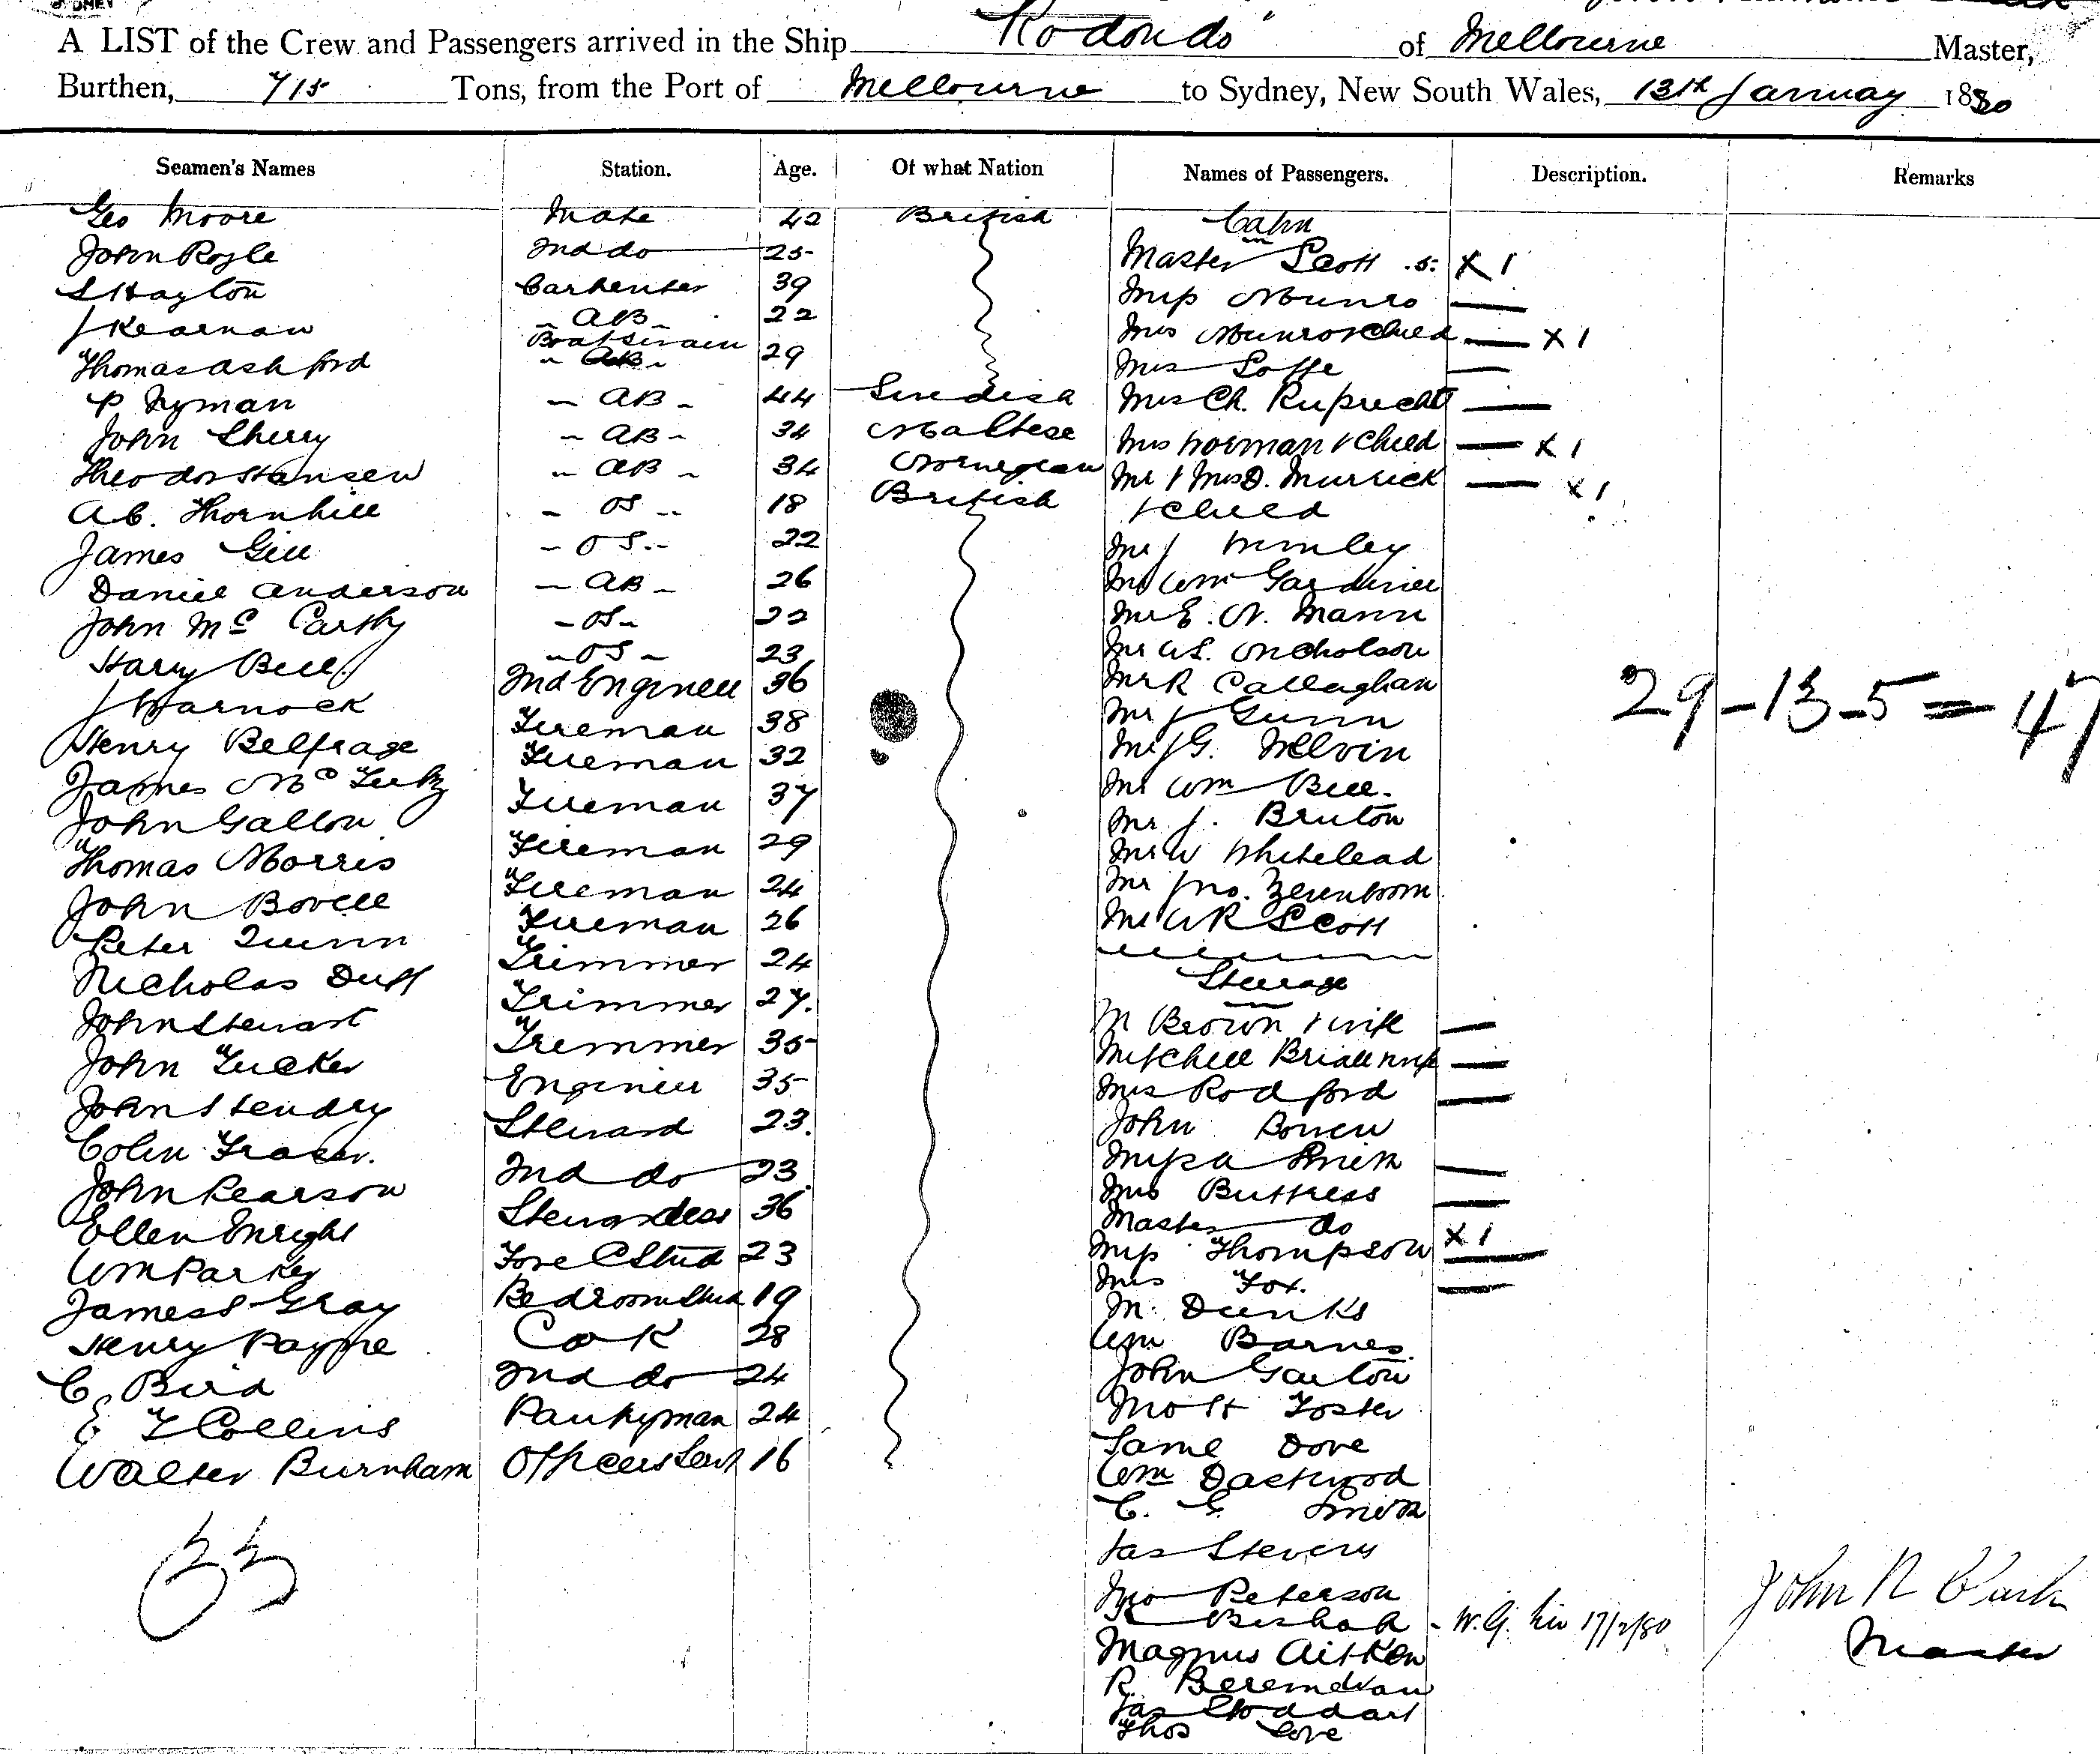 A LIST of the Crew and Passengers arrived in the Ship Rodondo of Melbourne Master,
Burthen, 715 Tons, from the Port of Melbourne to Sydney, New South Wales, 13th January 1880
Seamen's Names Station. Age. Of what Nation Names of Passengers. Description. Remarks
Geo Moore Mate 42 British Cabin
John Royle 2nd do 25 Master Scott .5. X 1
S Hayton Carpenter 39 Miss Munro
J Kearnan AB 22 Mrs Munro & Child X 1
Thomas Ashford Boatswain AB 29 Mrs
P Nyman AB 44 Swedish Mrs Ch. Ruprecht
John Sherry AB 34 Maltese Mrs Norman & Child X 1
Theodor Hansen AB 34 Norwegian Mr & Mrs D. Murrick X 1
A C. Thornhill OS 18 British & Child
James Gill OS 22 Mr J
Daniel Anderson AB 26 Mr Wm Gardiner
John Mc Carthy OS 22 Mr E. N. Mann
Harry Bell OS 23 Mr A S. Nicholson
J Warnock 2nd Engineer 36 Mr R Callaghan
Henry Belfrage Fireman 38 Mr J Gunn 29-13-5=47
James Mc Fireman 32 Mr J G. Melvin
John Gallon Fireman 37 Mr Wm Bell.
Thomas Morris Fireman 29 Mr J. Bruton
John Bovell Fireman 24 Mr W Whitelead
Peter Quinn Fireman 26 Mr Jno.
Nicholas Duff Trimmer 24 Mr W R Scott
John Stewart Trimmer 27. Steerage
John Tucker Trimmer 35 M Brown & wife
John Hendry Engineer 35 Mitchell wife
Colin Fraser. Steward 23. Mrs Rodford
John Pearson 2nd do 23 John Bowen
Ellen Enright Stewardess 36 Miss A Smith
Wm Parker Fore C Stwd 23 Mrs Buttress
James S Gray Bedroom Stwd 19 Master do X 1
Henry Payne Cook 28 Miss Thompson
C. Bird 2nd do 24 Mrs Fox.
E F Collins Pantryman 24 M. Dunks
Walter Burnham Officers Servt 16 Wm Barnes.
33 John Garton
Foster
Saml Dove
Wm Dastwood
C. G. Smith
Jas Stevens
Jno Peterson
Bishop - W. G. 17/2/80 John N Clark
Magnus Aitken Master
R.
Jas Stoddart
Thos Love